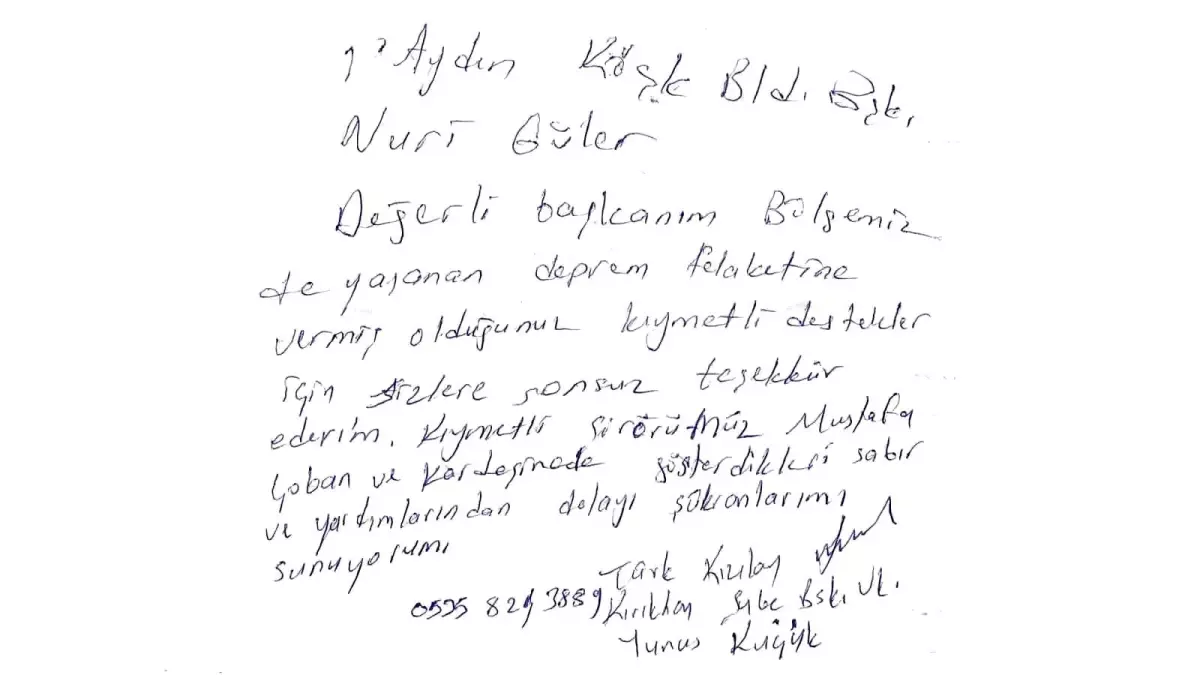 1² Aydın Köşk Bld. Bşk.
Nuri Güler
Değerli başkanım Bölgeniz
de yaşanan deprem felaketine
vermiş olduğunuz kıymetli destekler
için sizlere sonsuz teşekkür
ederim. Kıymetli şöförümüz Mustafa
Çoban ve Kardeşinede gösterdikleri sabır
ve yardımlarından dolayı şükranlarımı
sunuyorum
Türk Kızılay
0535 829 3889 Kırıkhan Şube Bşk. Vk.
Yunus Küçük